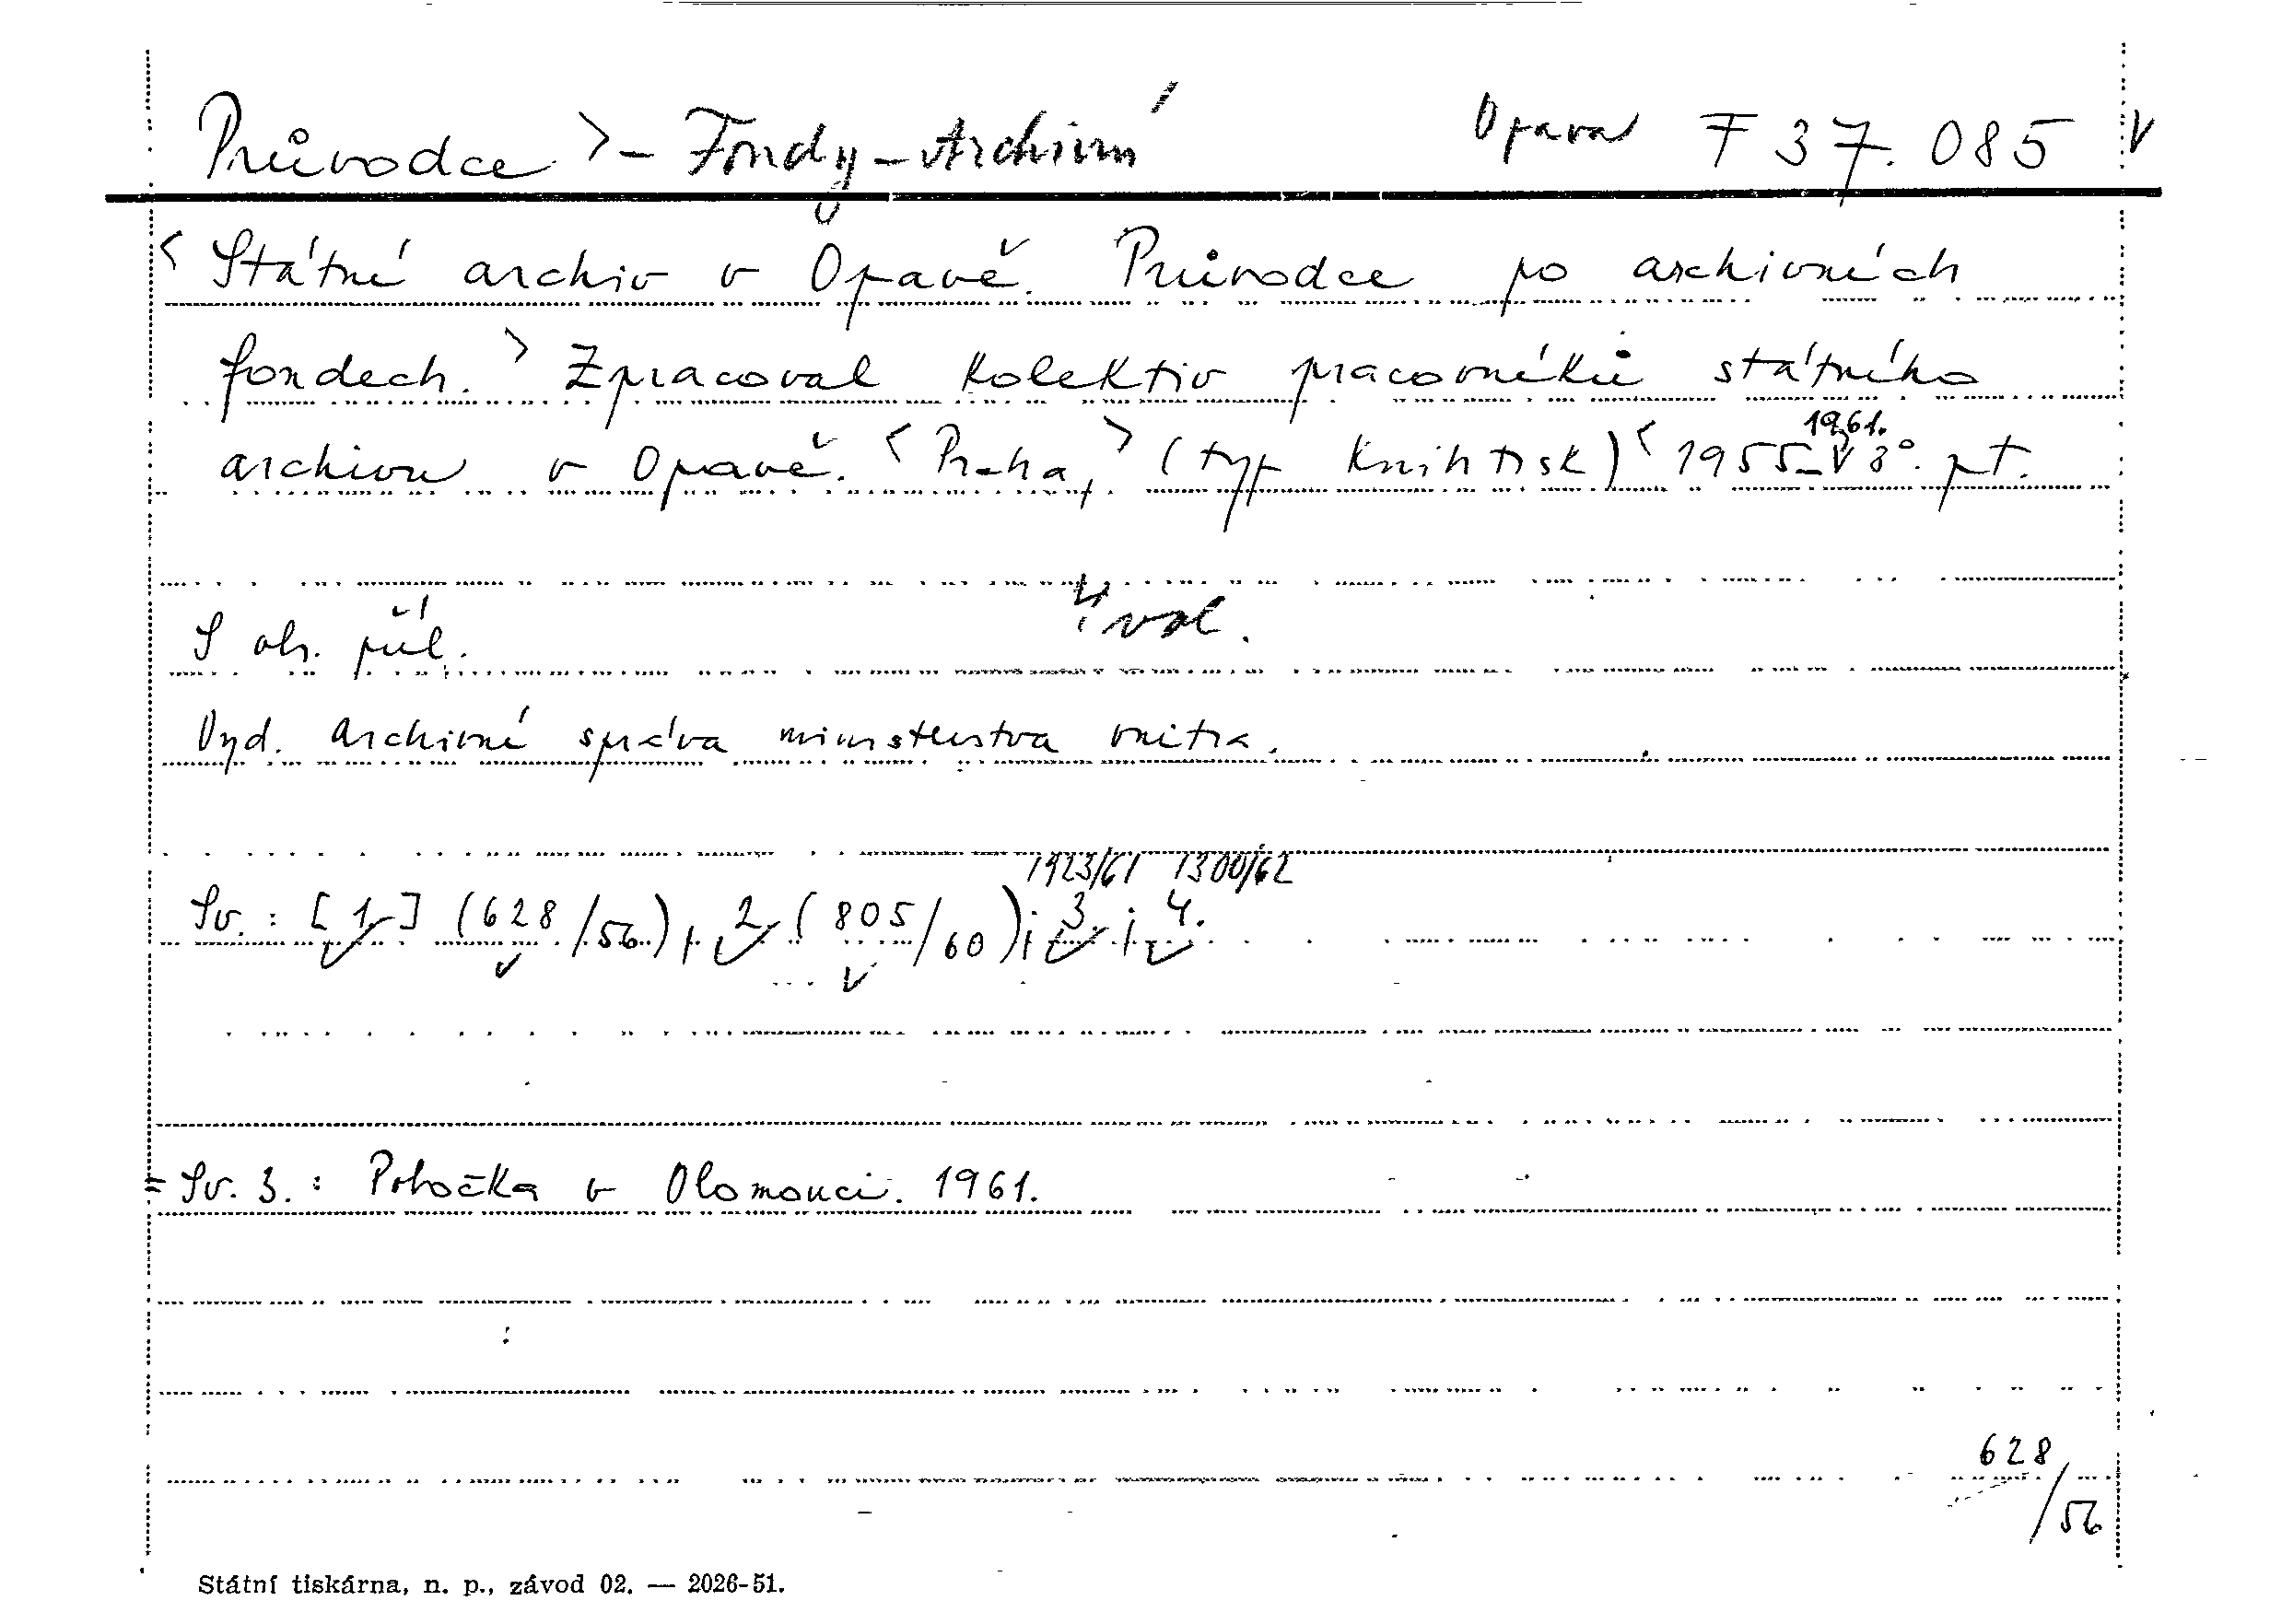 Průvodce > - Fondy - Archivní Opava F 37.085 V
< Státní archiv v Opavě. Průvodce po archivních
fondech. > Zpracoval kolektiv pracovníků státního
1961.
archivu v Opavě. < Praha, > (typ Knihtisk) < 1955- 8°. pt.
4 vol.
S obr. příl.
Vyd. Archivní správa ministerstva vnitra.
1923/61 1300/62
Sv. : [1] (628/56), 2 (805/60); 3. ; 4.
= Sv. 3. : Pobočka v Olomouci. 1961.
628/56
Státní tiskárna, n. p., závod 02. — 2026-51.